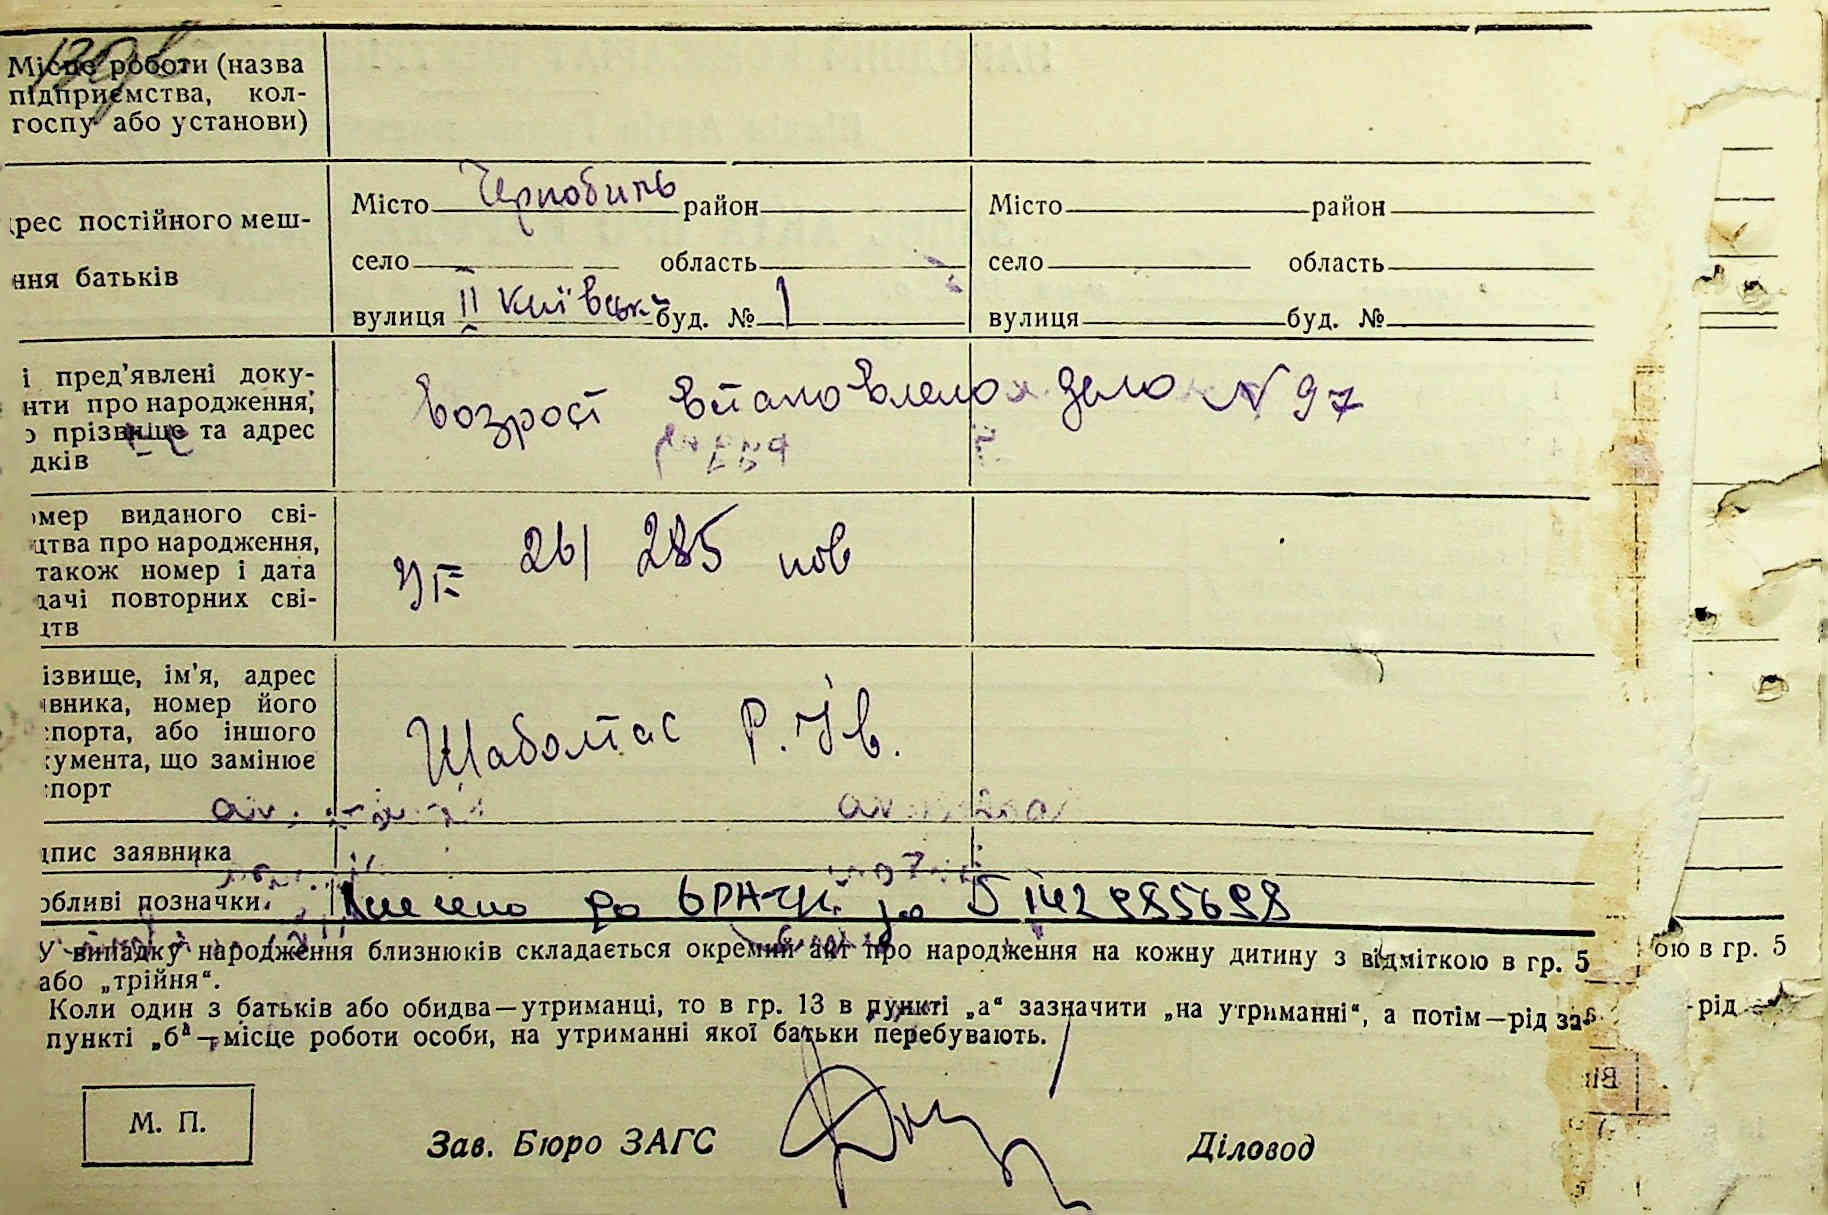 Місце роботи (назва
підприємства, кол-
госпу або установи)
рес постійного меш-
ння батьків
Місто Чернобиль район
село область
вулиця ІІ Київськ буд. № 1
Місто район
село область
вулиця буд. №
і пред’явлені доку-
нти про народження,
о прізвище та адрес
дків
возрост встановлено дело N 97
мер виданого сві-
цтва про народження,
також номер і дата
дачі повторних сві-
цтв
261 285 нов
ізвище, ім’я, адрес
вника, номер його
спорта, або іншого
кумента, що замінює
спорт
Шаболтас Р. Ів.
дпис заявника
обливі позначки.
до за 5142985698
У випадку народження близнюків складається окремий акт про народження на кожну дитину з відміткою в гр. 5
або „трійня“.
Коли один з батьків або обидва—утриманці, то в гр. 13 в пункті „а“ зазначити „на утриманні“, а потім—рід за
пункті „б“—місце роботи особи, на утриманні якої батьки перебувають.
ою в гр. 5
-рід
М. П.
Зав. Бюро ЗАГС
Діловод